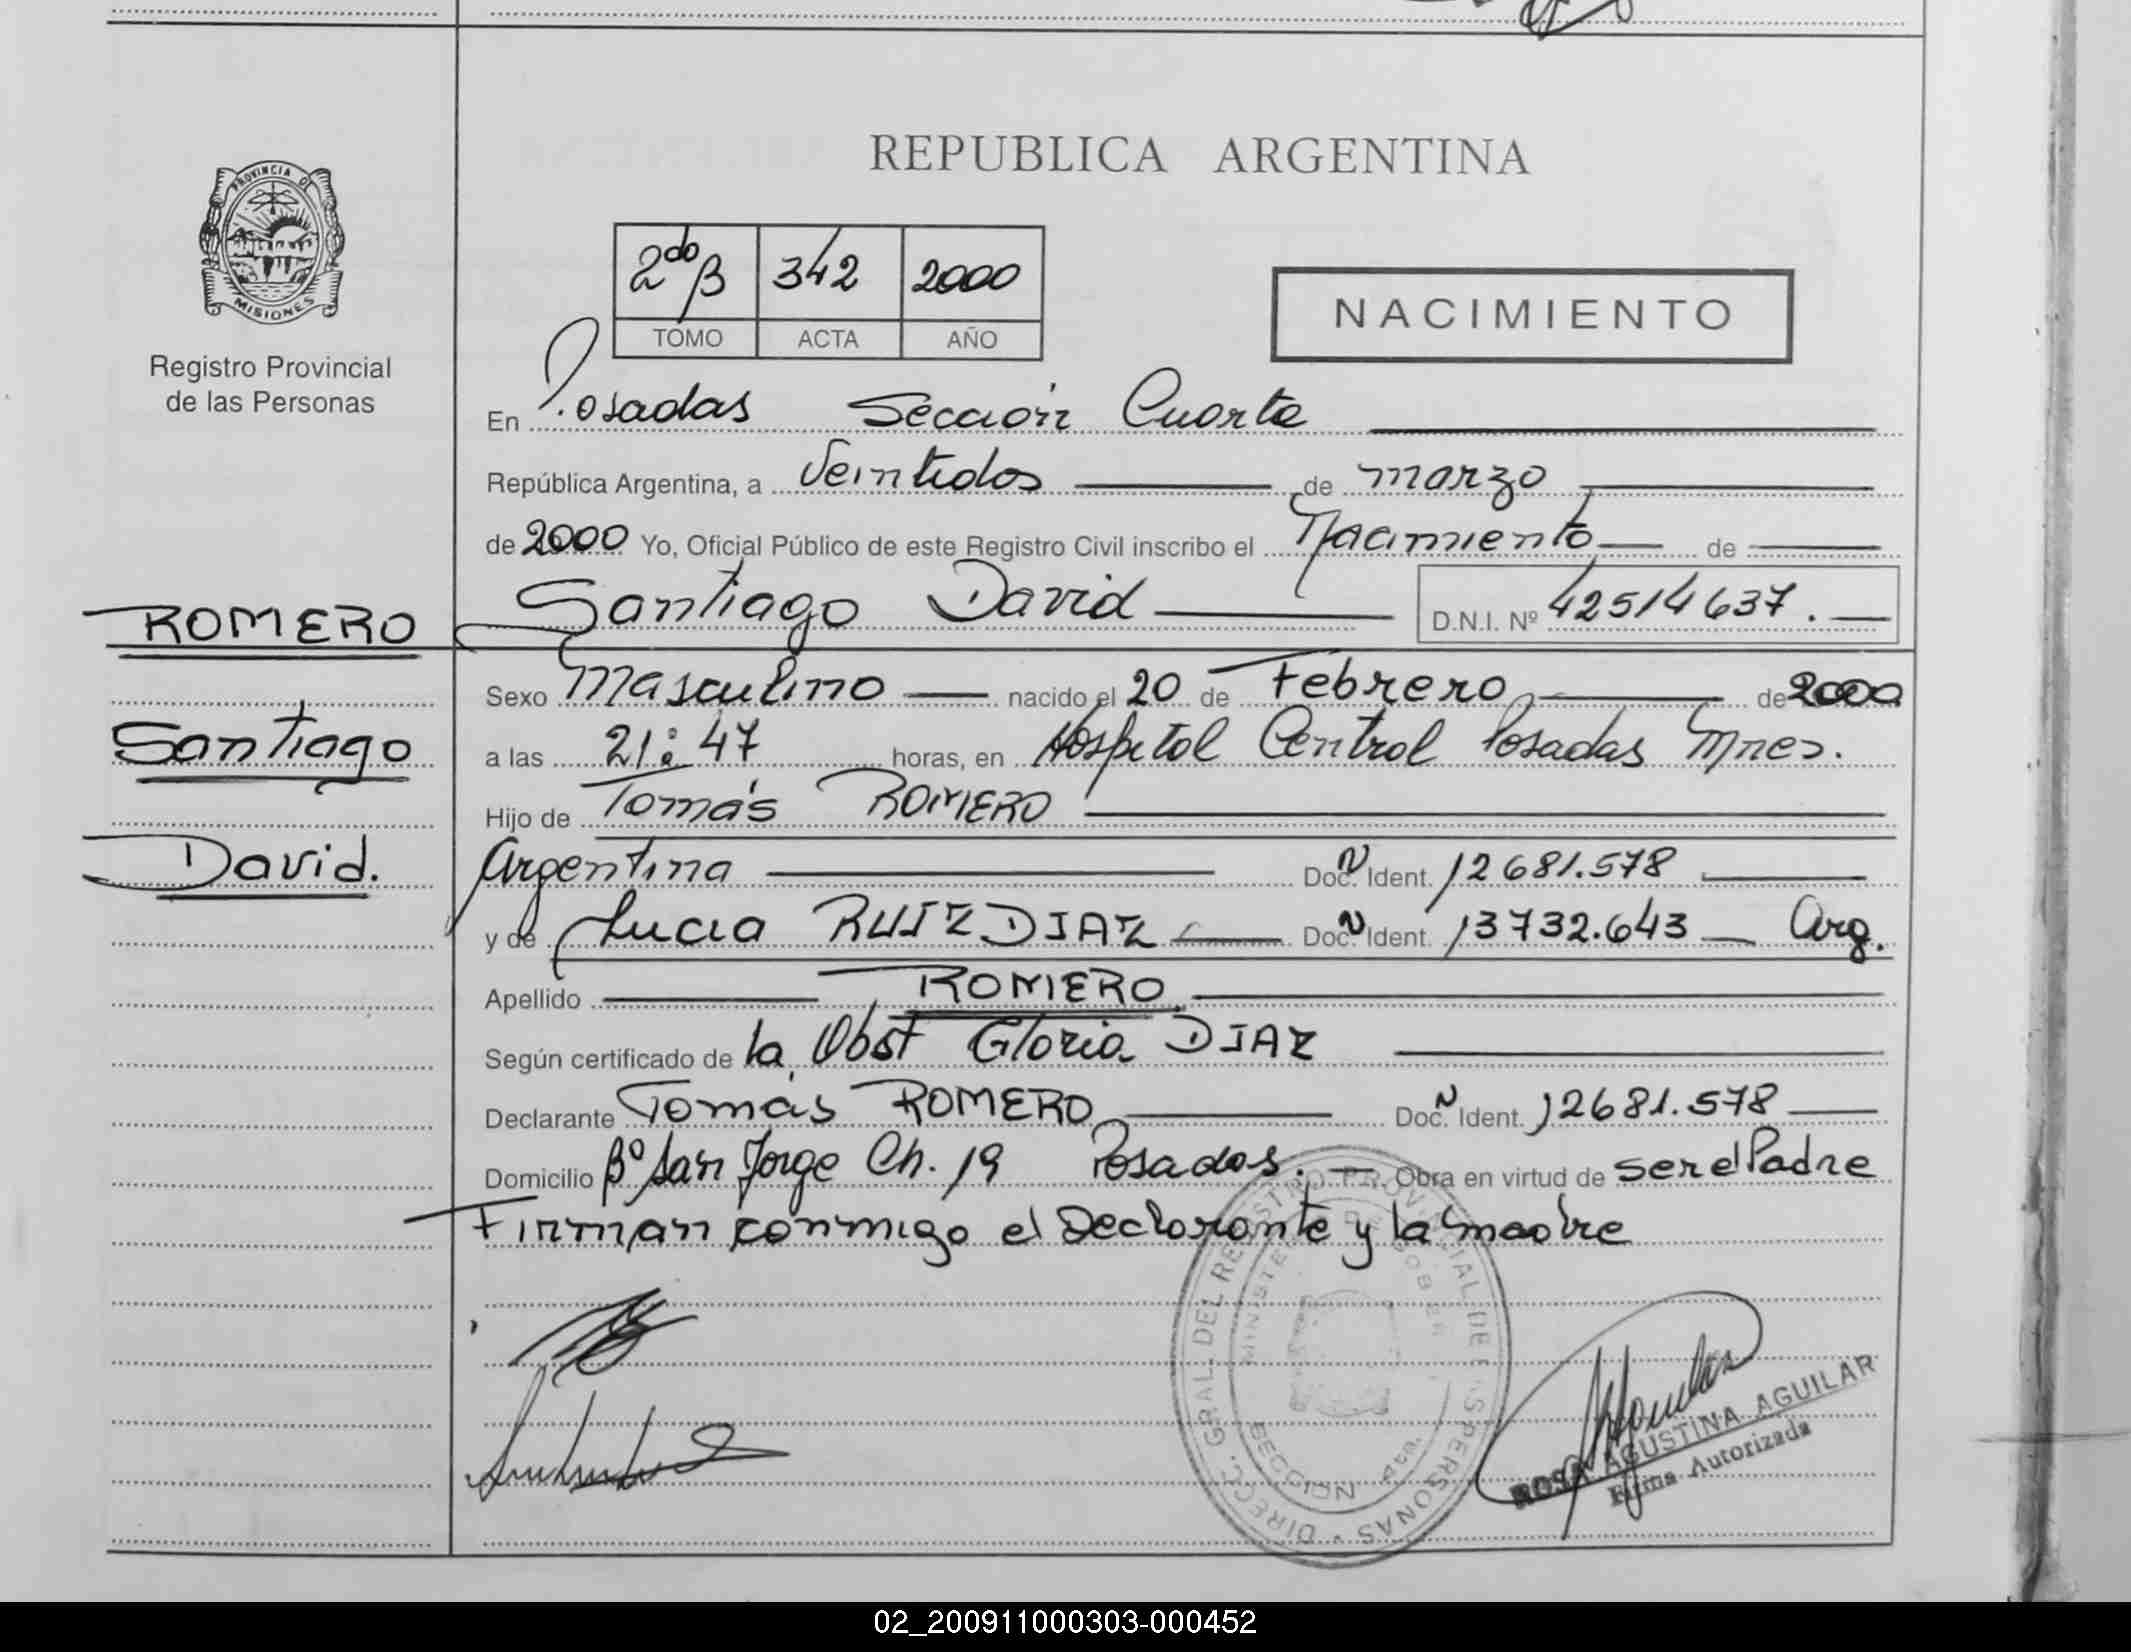 REPUBLICA ARGENTINA
PROVINCIA DE
MISIONES
Registro Provincial
de las Personas
2do B 342 2000
TOMO ACTA AÑO
NACIMIENTO
En Posadas Sección Cuarta
República Argentina, a Veintidos de marzo
de 2000 Yo, Oficial Público de este Registro Civil inscribo el Nacimiento de
Santiago David D.N.I. Nº 42514637.
ROMERO
Santiago
David.
Sexo Masculino nacido el 20 de Febrero de 2000
a las 21:47 horas, en Hospital Central Posadas Mnes.
Hijo de Tomás ROMERO
Argentina Doc. N Ident. 12681.578
y de Lucia RUIZ DIAZ Doc. N Ident. 13732.643 Arg.
Apellido ROMERO
Según certificado de la Obst Gloria DIAZ
Declarante Tomás ROMERO Doc. N Ident. 12681.578
Domicilio Bº San Jorge Ch. 19 Posadas. Obra en virtud de ser el Padre
Firman conmigo el Declarante y la madre
DIRECC. GRAL. DEL REGISTRO PROVINCIAL DE LAS PERSONAS
SECCION 4ta.
ROSA AGUSTINA AGUILAR
Firma Autorizada
02_200911000303-000452